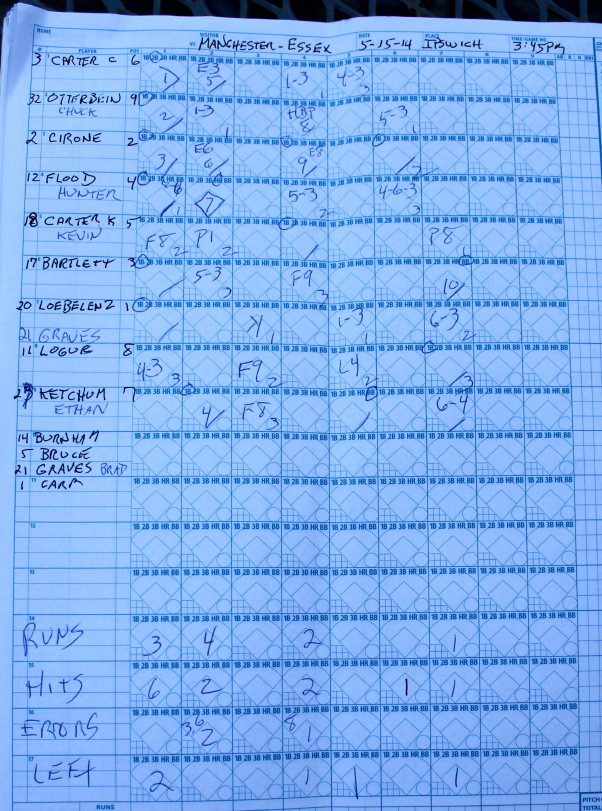 HOME VISITOR DATE PLACE TIME/GAME NO.
VS MANCHESTER-ESSEX 5-15-14 IPSWICH 3:45PM
# PLAYER POS 1 2 3 4 5 6 7
3 CARTER C 6 1 E-3 5 1-3 1 4-3 3
32 OTTERBEIN 9 2 1-3 1 HBP 8 5-3 1
CHUCK
2 CIRONE 2 3 E6 6 E8 9
12 FLOOD 4 7 5-3 2 4-6-3 3
HUNTER
18 CARTER K 5 F8 2 P1 2 P8 1
KEVIN
17 BARTLETT 3 5-3 3 F9 3 10
20 LOEBELENZ 1 K 1 1-3 1 6-3 2
21 GRAVES
11 LOGUE 8 4-3 3 F9 2 L4 2 3
KETCHUM 7 4 F8 3 6-4
ETHAN
14 BURNHAM
5 BRUCE
21 GRAVES BRAD
1 CARR
11
12
13
14
RUNS 3 4 2 1
15
HITS 6 2 2 1 1
16
ERRORS 3,6 2 8 1
17
LEFT 2 1 1 1
RUNS
PITCH
TOTAL